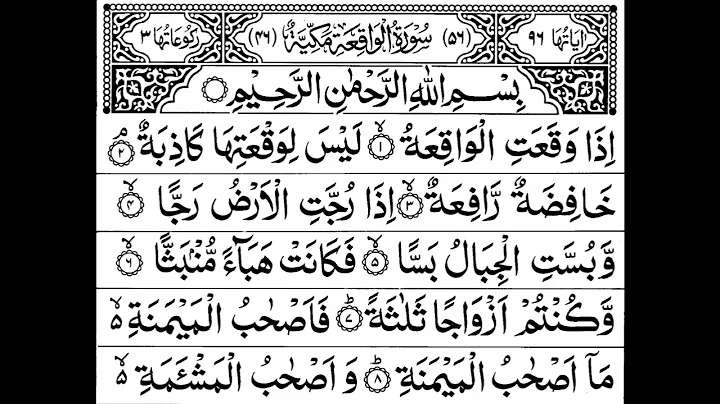 اٰيَاتُهَا ٩٦ (٥٦) سُوْرَةُ الْوَاقِعَةِ مَكِّيَّةٌ (٤٦) رُكُوْعَاتُهَا ٣
بِسْمِ اللّٰهِ الرَّحْمٰنِ الرَّحِيْمِ
اِذَا وَقَعَتِ الْوَاقِعَةُ ۙ﴿١﴾ لَيْسَ لِوَقْعَتِهَا كَاذِبَةٌ ۘ﴿٢﴾
خَافِضَةٌ رَّافِعَةٌ ۙ﴿٣﴾ اِذَا رُجَّتِ الْاَرْضُ رَجًّا ۙ﴿٤﴾
وَّبُسَّتِ الْجِبَالُ بَسًّا ۙ﴿٥﴾ فَكَانَتْ هَبَآءً مُّنْۢبَثًّا ۙ﴿٦﴾
وَّكُنْتُمْ اَزْوَاجًا ثَلٰثَةً ؕ﴿٧﴾ فَاَصْحٰبُ الْمَيْمَنَةِ ۙ۵
مَاۤ اَصْحٰبُ الْمَيْمَنَةِ ؕ﴿٨﴾ وَ اَصْحٰبُ الْمَشْـَٔمَةِ ۙ۵